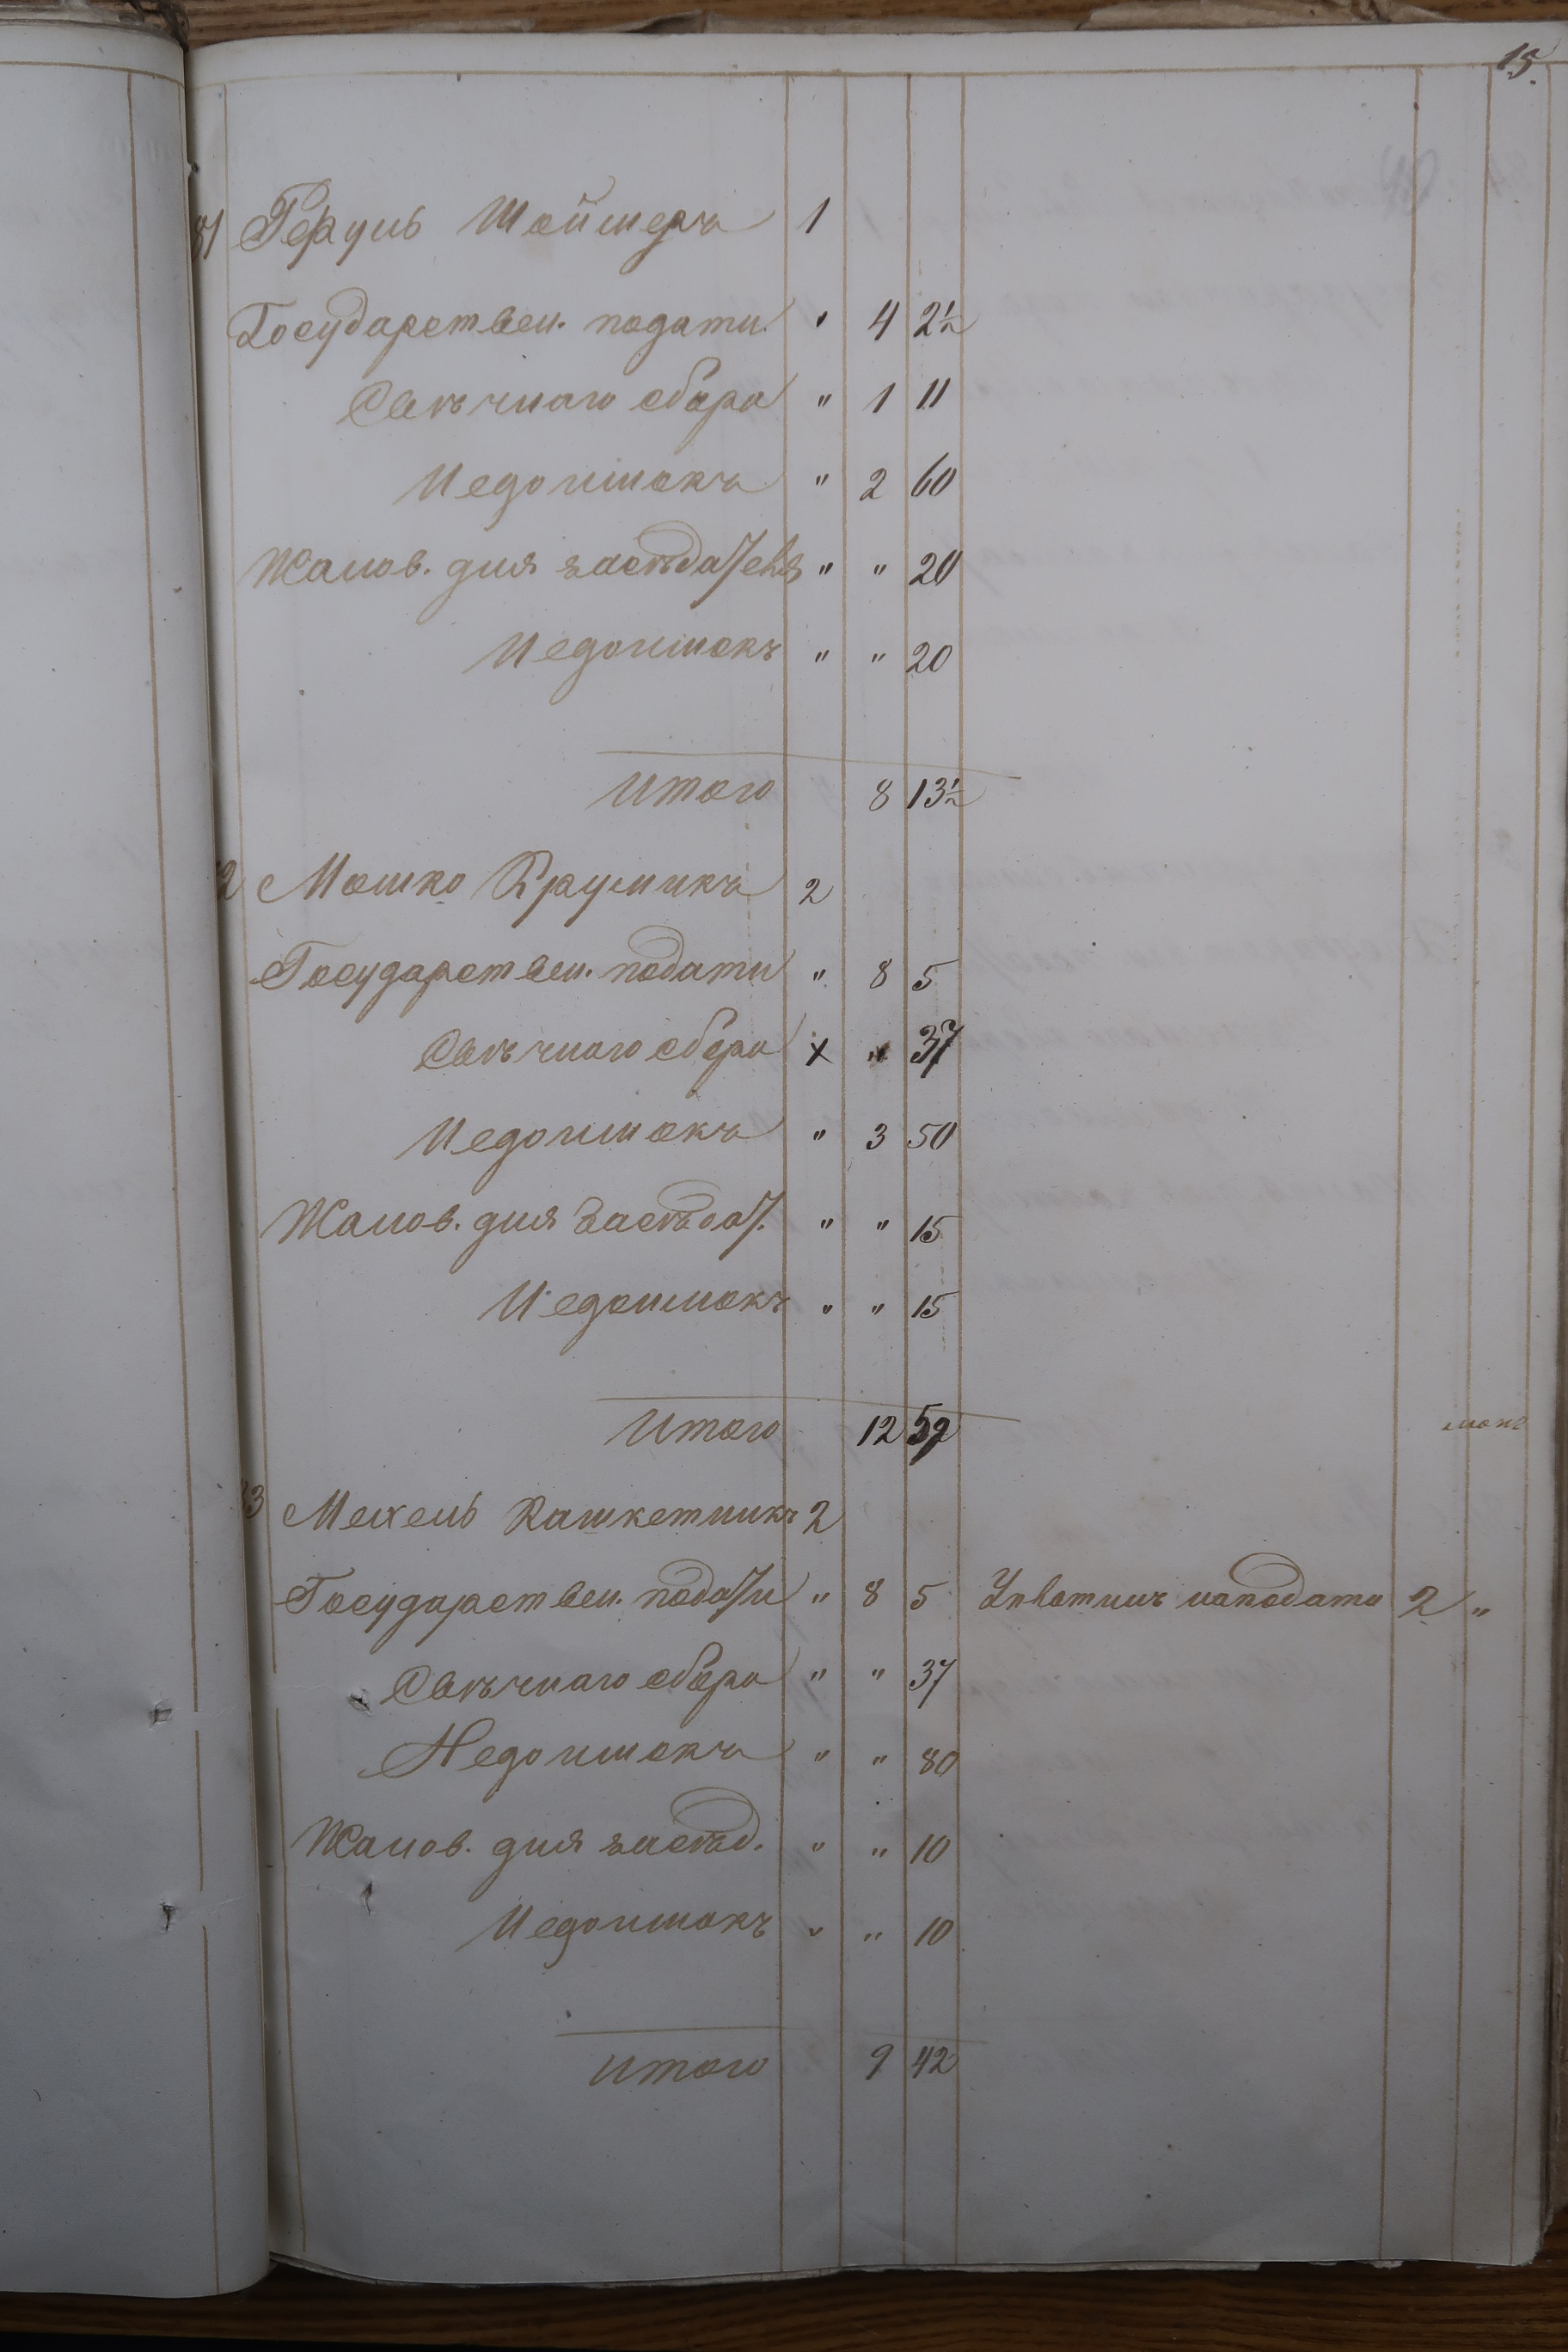 15.
81 Герунь Шоймеръ 1
Государствен. подати " 4 2½
Свѣчнаго сбора " 1 11
Недоимокъ " 2 60
Жалов. для засѣдателя " " 20
Недоимокъ " " 20
Итого 8 13½
2 Мошко Крупникъ 2
Государствен. подати " 8 5
Свѣчнаго сбора х " 37
Недоимокъ " 3 50
Жалов. для Засѣдат. " " 15
Недоимокъ " " 15
Итого 12 52
3 Мехель Кашкетникъ 2
Государствен. подати " 8 5 подати 2 "
Свѣчнаго сбора " " 37
Недоимокъ " " 80
Жалов. для засѣд. " " 10
Недоимокъ " " 10
Итого 9 42